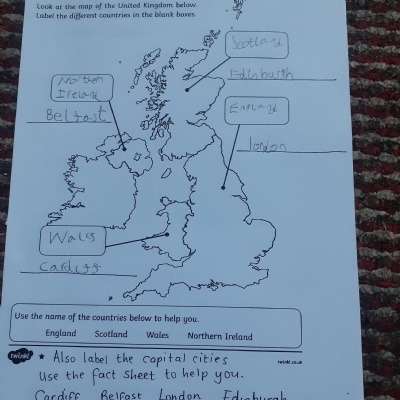 Look at the map of the United Kingdom below.
Label the different countries in the blank boxes.
Scotland
Edinburgh
Northern
Ireland
Belfast
England
london
Wales
Cardiff
Use the name of the countries below to help you.
England Scotland Wales Northern Ireland
twinkl
twinkl.co.uk
* Also label the capital cities
Use the fact sheet to help you.
Cardiff Belfast London Edinburgh